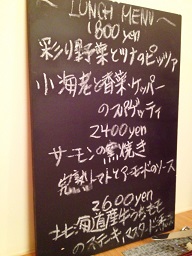 LUNCH MENU
1800 yen
彩り野菜とツナのピッツア
小海老と香菜・ケッパー
のスパゲッティ
2400 yen
サーモンの窯焼き
完熟トマトとアーモンドのソース
2600 yen
北海道産牛うちもも
のステーキ、マスタード